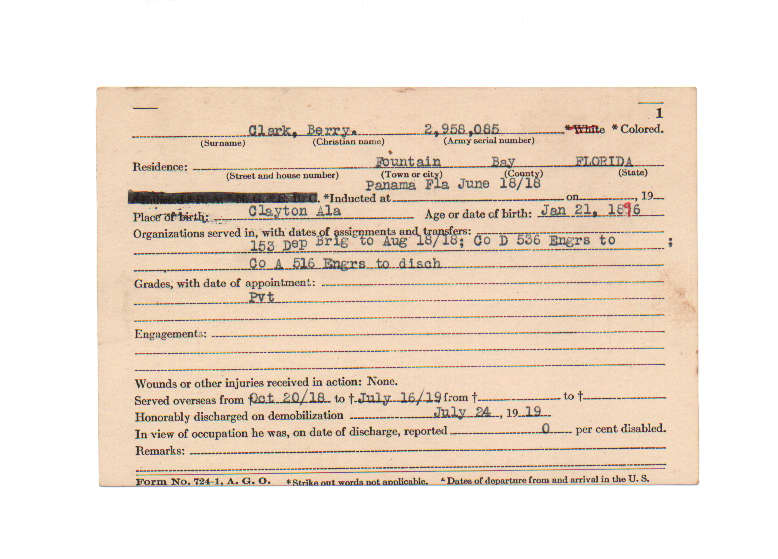 1
Clark, Berry. 2,958,085 *White *Colored.
(Surname) (Christian name) (Army serial number)
Residence: Fountain Bay FLORIDA
(Street and house number) (Town or city) (County) (State)
Panama Fla June 18/18
*Inducted at on , 19
Place of birth: Clayton Ala Age or date of birth: Jan 21, 1896
Organizations served in, with dates of assignments and transfers:
153 Dep Brig to Aug 18/18; Co D 536 Engrs to ;
Co A 516 Engrs to disch
Grades, with date of appointment:
Pvt
Engagements:
Wounds or other injuries received in action: None.
Served overseas from Oct 20/18 to † July 16/19 from † to †
Honorably discharged on demobilization July 24, 19 19
In view of occupation he was, on date of discharge, reported 0 per cent disabled.
Remarks:
Form No. 724-1, A. G. O. *Strike out words not applicable. Dates of departure from and arrival in the U. S.